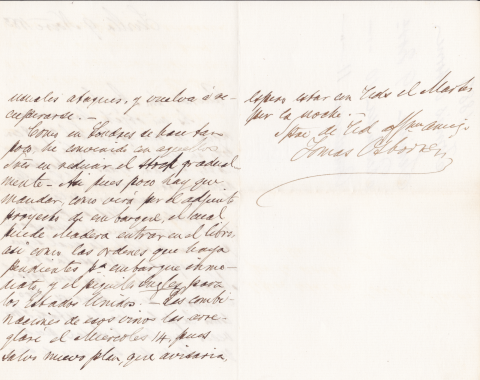 usuales ataques, y vuelva á re-
cuperarse.-
Como en Londres se hace tam
poco he convenido en aquellos
Sres en reducir el stock gradual
mente- Así pues poco hay que
mandar, como verá por el adjunto
proyecto de embarque, el cual
puede Madera entrar en el libro
así como las ordenes que haya
pendientes pa embarque inme-
diato, y el piquito Ingles para
los Estados Unidos.- Las combi-
naciones de esos vinos las arre-
glaré el Miercoles 14, pues
salvo nuevo plan, que avisaria,
espero estar con Vds. el Martes
por la noche.-
Spre. de Vd affmo amigo
Tomas Osborne